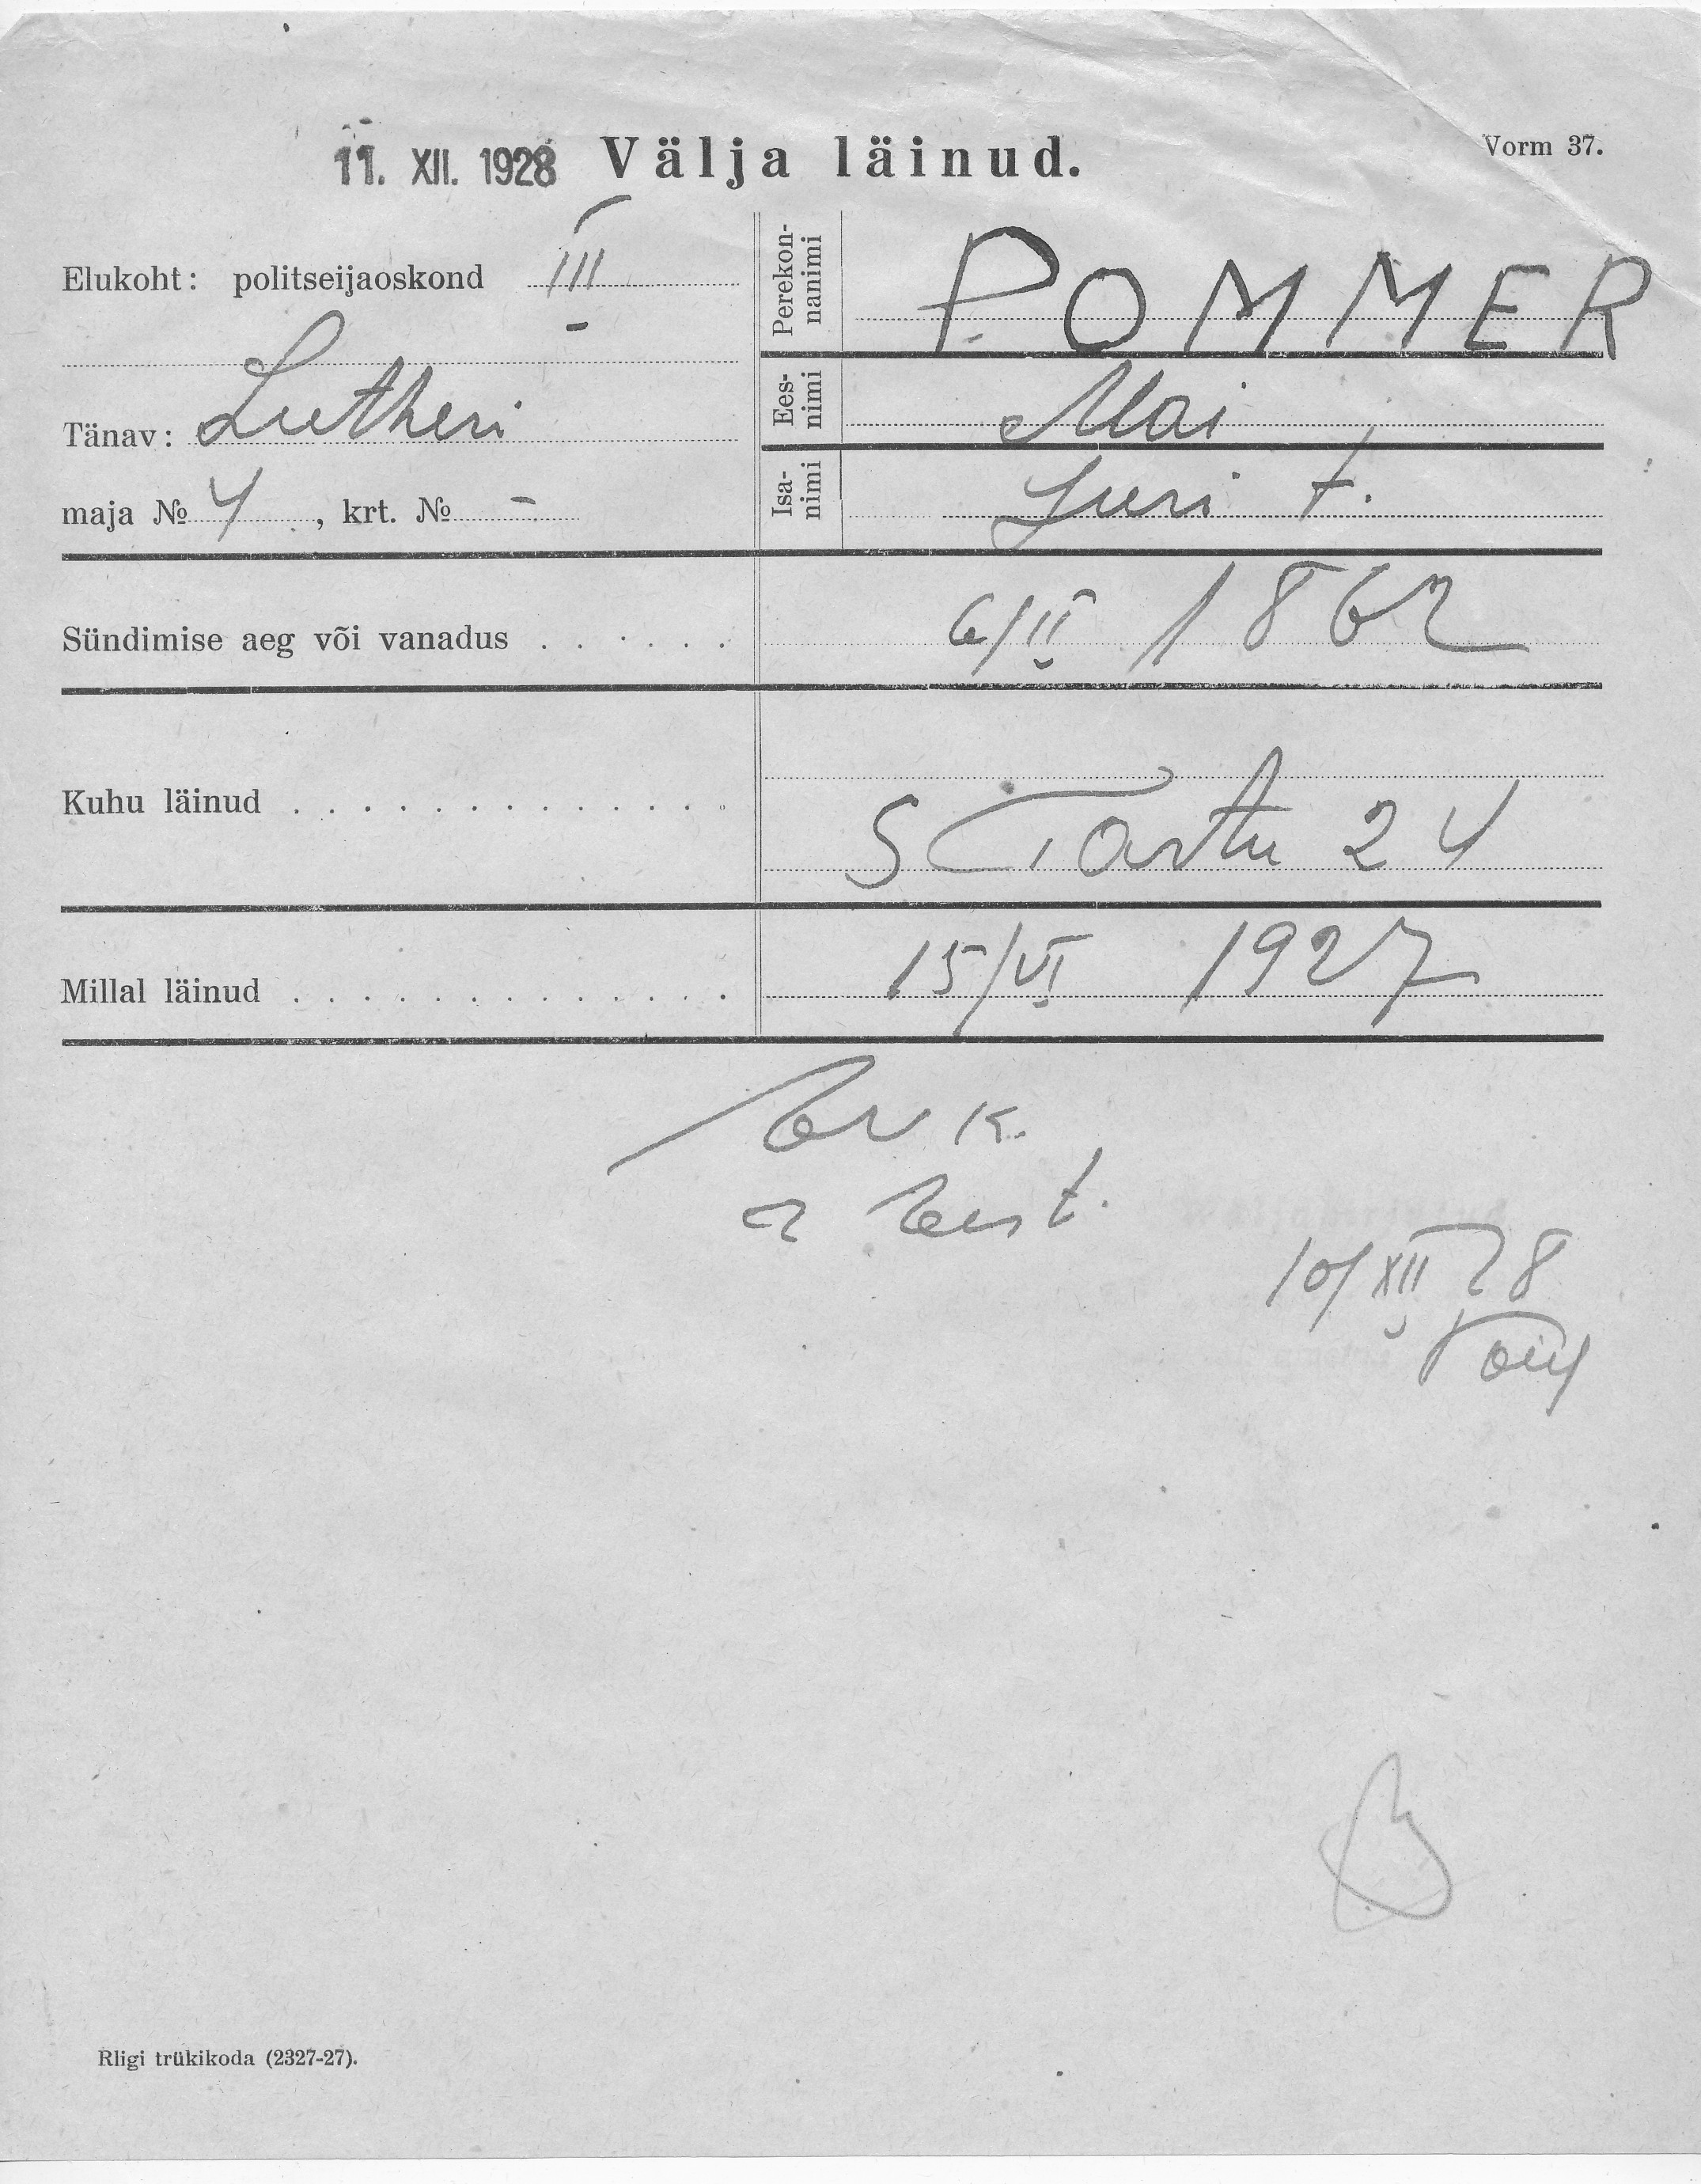 11. XII. 1928 Välja läinud.
Vorm 37.
Elukoht: politseijaoskond III
Tänav: Lutheri
maja № 4, krt. № -
Perekonnanimi POMMER
Eesnimi Mai
Isanimi Juri t.
Sündimise aeg või vanadus . . . . . . 6/II 1862
Kuhu läinud . . . . . . . . . . . . . S Tartu 24
Millal läinud . . . . . . . . . . . . . 15/VI 1927
10/XII 28
Riigi trükikoda (2327-27).